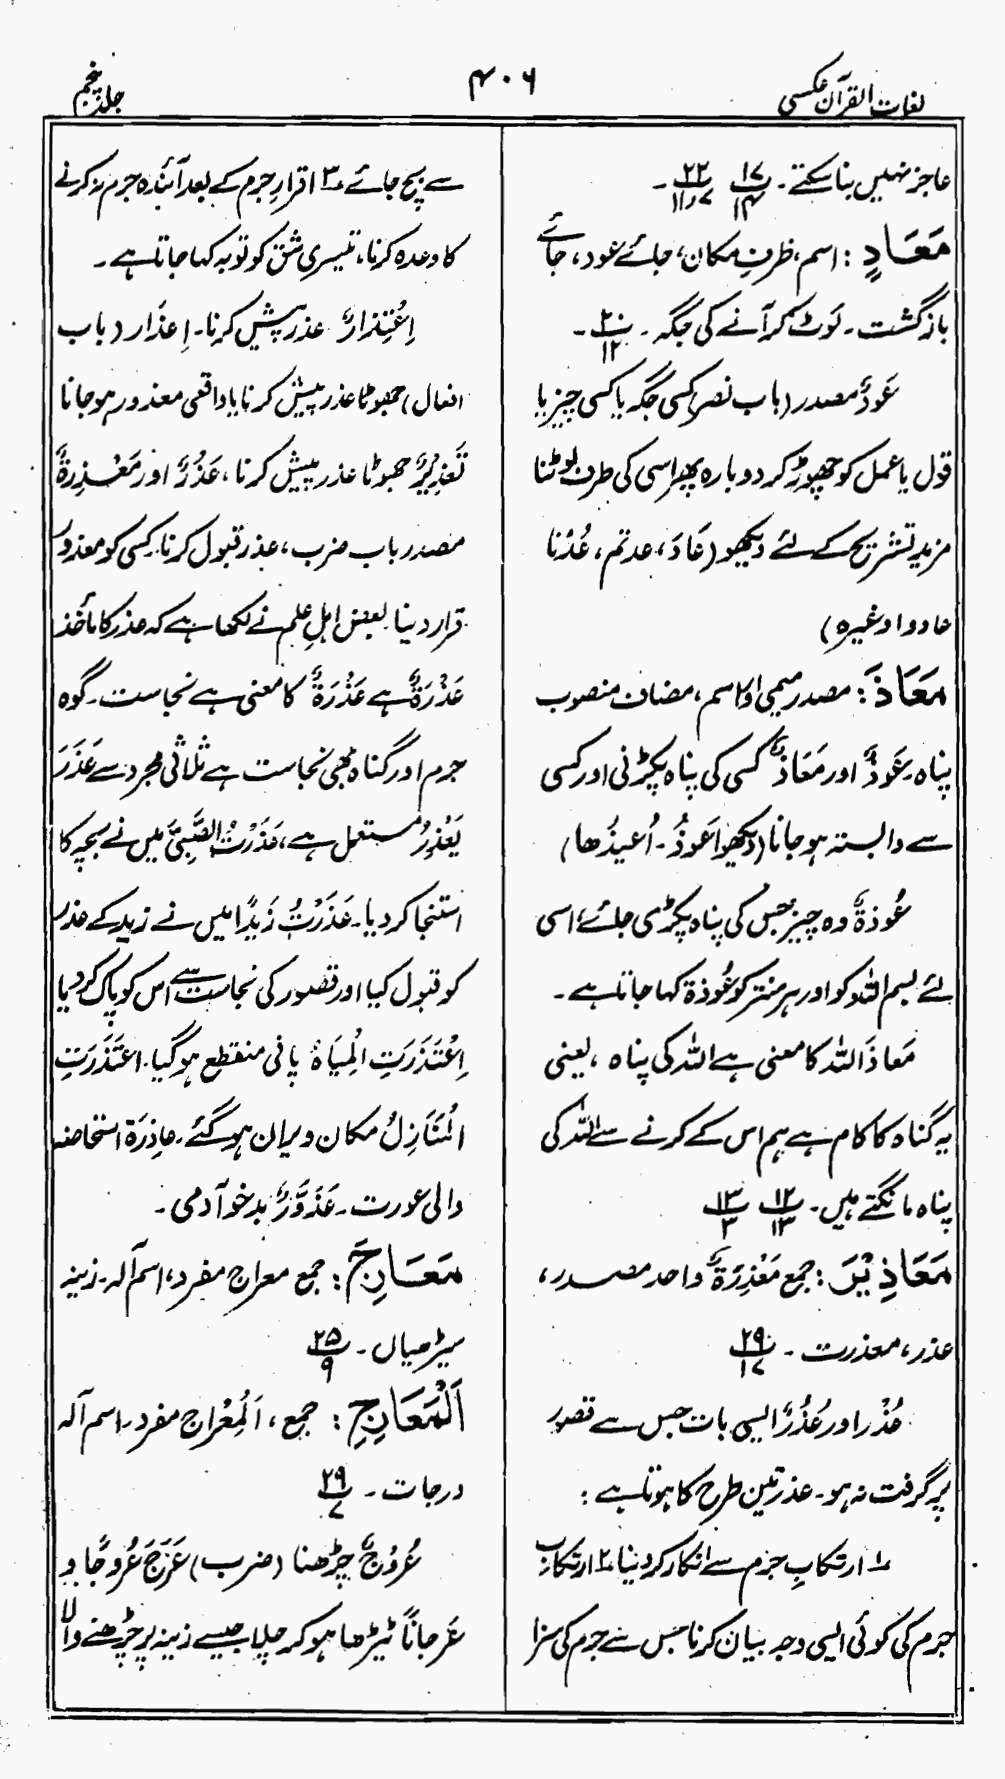 لغات القرآن عکسی
۴۰۶
جلد پنجم
عاجز نہیں بنا سکتے۔ ۱۷/۱۴ ۲۲/۱۱،۷۔
مَعَادٍ: اسم ظرفِ مکان، جائے عود، جائے
بازگشت۔ لوٹ کر آنے کی جگہ۔ ۲۰/۱۲۔
عَودٌ مصدر (باب نصر) کسی جگہ یا کسی چیز یا
قول یا عمل کو چھوڑ کر دوبارہ پھر اسی کی طرف لوٹنا
مزید تشریح کے لئے دیکھو (عَادَ، عدتم، عُدْنا
عادوا وغیرہ)
مَعَاذَ: مصدر میمی اور اسم، مضاف منصوب
پناہ۔ عَوذٌ اور مَعَاذٌ کسی کی پناہ پکڑنی اور کسی
سے وابستہ ہو جانا (دیکھو اَعوذُ۔ اُعیذُھا)
عُوذةٌ وہ چیز جس کی پناہ پکڑی جائے اسی
لئے بسم اللہ کو اور ہر منتر کو عُوذة کہا جاتا ہے۔
مَعاذَ اللہ کا معنی ہے اللہ کی پناہ، یعنی
یہ گناہ کا کام ہے ہم اس کے کرنے سے اللہ کی
پناہ مانگتے ہیں۔ ۱۲/۱۳ ۱۳/۳
مَعَاذِیْرَ: جمع مَعْذِرَةٌ واحد مصدر،
عذر، معذرت۔ ۲۹/۱۷
عُذْر اور عُذُرٌ ایسی بات جس سے قصور
پر گرفت نہ ہو۔ عذر تین طرح کا ہوتا ہے:
۱؎ ارتکابِ جرم سے انکار کر دینا ۲؎ ارتکاب
جرم کی کوئی ایسی وجہ بیان کرنا جس سے جرم کی سزا
سے بچ جائے ۳؎ اقرارِ جرم کے بعد آئندہ جرم نہ کرنے
کا وعدہ کرنا، تیسری شق کو توبہ کہا جاتا ہے۔
اِعْتِذارٌ عذر پیش کرنا۔ اِعذَار (باب
افعال) جھوٹا عذر پیش کرنا یا واقعی معذور ہو جانا
تَعْذِیْرٌ جھوٹا عذر پیش کرنا، عُذُرٌ اور مَعْذِرَةٌ
مصدر باب ضرب، عذر قبول کرنا۔ کسی کو معذور
قرار دینا۔ بعض اہلِ علم نے لکھا ہے کہ عذر کا مأخذ
عَذْرَةٌ ہے عَذْرَةٌ کا معنی ہے نجاست۔ گوہ
جرم اور گناہ بھی نجاست ہے ثلاثی مجرد سے عَذَرَ
یَعْذِرُ مستعمل ہے، عَذَرْتُ الصَّبِیَّ میں نے بچہ کا
استنجا کر دیا۔ عَذَرْتُ زَیدًا میں نے زید کے عذر
کو قبول کیا اور قصور کی نجاست سے اس کو پاک کر دیا
اِعْتَذَرَتِ الْمِیَاہُ پانی منقطع ہو گیا۔ اعتَذَرَتِ
الْمَنَازِلُ مکان ویران ہو گئے۔ عاذِرَة استحاضہ
والی عورت۔ عَذَوَّرٌ بدخو آدمی۔
مَعَارِجَ: جمع معراج مفرد، اسم آلہ۔ زینہ
سیڑھیاں۔ ۲۵/۹
اَلْمَعَارِجِ: جمع، اَلْمِعْراج مفرد۔ اسم آلہ
درجات۔ ۲۹/۷
عُرُوجٌ چڑھنا (ضرب) عَرَجَ عُروجًا و
عَرجاناً ٹیڑھا ہو کر چلا جیسے زینہ پر چڑھنے والا